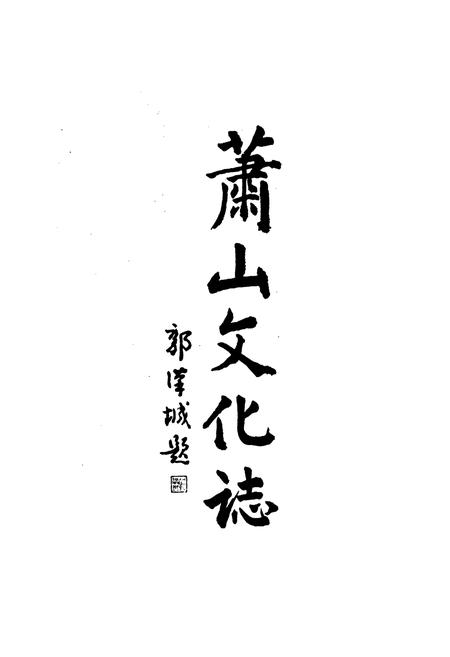 蕭山文化誌
郭漢城題